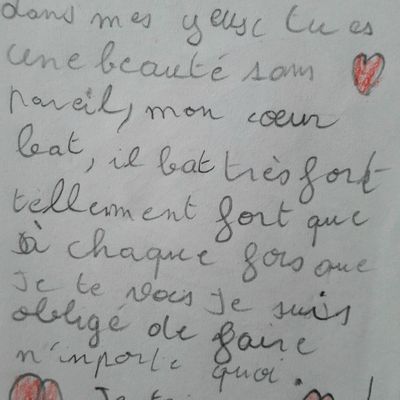 dans mes yeux tu es
une beauté sans
pareil, mon cœur
bat, il bat très fort
tellement fort que
à chaque fois que
Je te vois Je suis
obligé de faire
n'inporte quoi.
Je